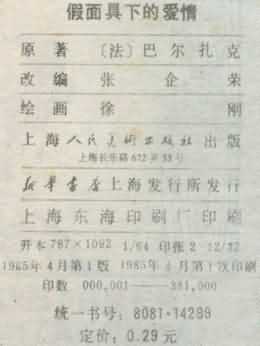 假面具下的爱情
原著 〔法〕巴尔扎克
改编 张企荣
绘画 徐刚
上海人民美术出版社出版
上海长乐路672弄33号
新华书店上海发行所发行
上海东海印刷厂印刷
开本787×1092 1/64 印张2 12/32
1985年4月第1版 1985年4月第1次印刷
印数 000,001——381,000
统一书号：8081·14289
定价：0.29元